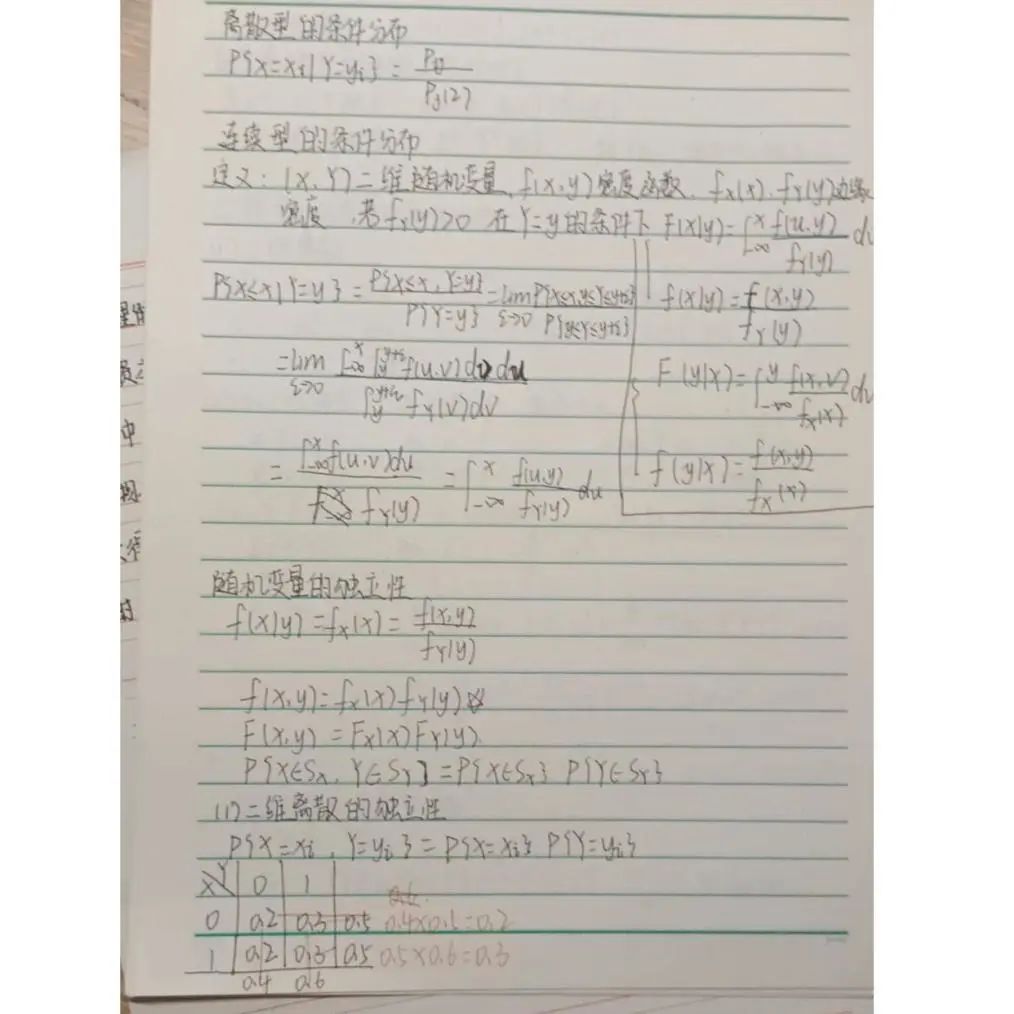 离散型的条件分布
P{X=xi|Y=yi} = Pij / Py(2)
连续型的条件分布
定义: (X,Y)二维随机变量, f(x,y)密度函数. fx(x). fY(y)边缘
密度, 若fY(y)>0 在Y=y的条件下 F(x|y)=∫_{-∞}^{x} f(u,y)/fY(y) du
P{X≤x|Y=y} = P{X≤x,Y=y}/P{Y=y} = lim_{ε→0} P{X≤x,y≤Y≤y+ε}/P{y≤Y≤y+ε}
f(x|y) = f(x,y)/fY(y)
=lim_{ε→0} ∫_{-∞}^{x}∫_{y}^{y+ε} f(u,v)dvdu / ∫_{y}^{y+ε} fY(v)dv
F(y|x)=∫_{-∞}^{y} f(x,v)/fx(x) dv
= ∫_{-∞}^{x} f(u,v)du / fY(y) = ∫_{-∞}^{x} f(u,y)/fY(y) du
f(y|x)= f(x,y)/fx(x)
随机变量的独立性
f(x|y)=fx(x)= f(x,y)/fY(y)
f(x,y)=fx(x)fY(y)☆
F(x,y)=Fx(x)FY(y)
P{X∈Sx, Y∈SY}=P{X∈Sx} P{Y∈SY}
(1)二维离散的独立性
P{X=xi, Y=yi}=P{X=xi} P{Y=yi}
X\Y 0 1
0 0.2 0.3 0.5 0.4×0.5=0.2
1 0.2 0.3 0.5 0.5×0.6=0.3
0.4 0.6